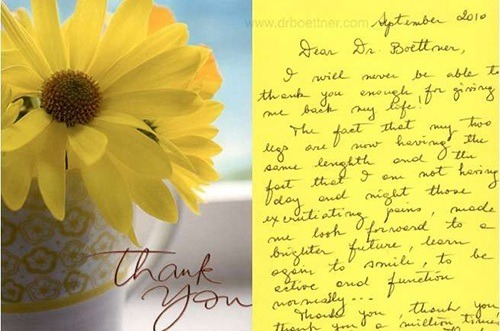 thank
you
www.drboettner.com
September 2010
Dear Dr. Boettner,
I will never be able to
thank you enough for giving
me back my life!
The fact that my two
legs are now having the
same lenghth and the
fact that I am not having
day and night those
exrutiating pains, made
me look forward to a
brighter future, learn
again to smile, to be
active and function
normally...
Thank you, thank you
thank you a million times